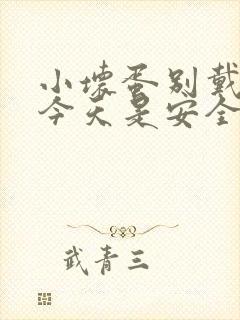 小坏蛋别戴
今天是安全
武青三